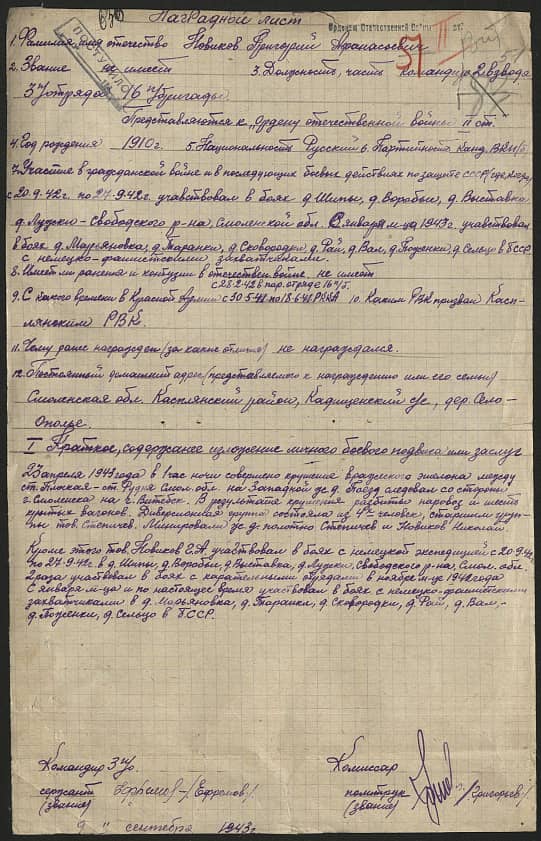 Наградной лист
Орденом Отечественной Войны II
1. Фамилия имя отчество Новиков Григорий Афанасьевич
2. Звание не имеет 3. Должность, часть командир 2 взвода
3 ч/отряда 16 п/бригады.
Представляются к „Ордену отечественной войны II ст.
4. Год рождения 1910 г. 5. Национальность Русский 6. Партийность Канд. ВКП/б
7. Участие в гражданской войне и в последующих боевых действиях по защите СССР (где, когда)
с 20.9.42 г. по 27.9.42 г. участвовал в боях д. Шипы, д. Воробьи, д. Выставка
д. Лудски-Свободского р-на, Смоленской обл. С января м-ца 1943 г. участвовал
в боях д. Марьяновка, д. Таранки, д. Сковородки д. Рай, д. Вал, д. Поженки д. Сельцо в БССР
с немецко-фашистскими захватчиками.
8. Имеет ли ранения и контузии в отечествен. войне. не имеет
с 28.2.42 в пар. отряде 16 п/б.
9. С какого времени в Красной Армии с 30.5.41 по 18.6.41 РККА 10. Каким РВК призван Касп-
лянским РВК.
11. Чему ранее награжден (за какие отличия) не награждался.
12. Постоянный домашний адрес (представляемого к награждению или его семьи)
Смоленская обл. Касплянский район, Кадищенский с/с, дер. Село-
Ополье.
I Краткое, содержание изложение личного боевого подвига или заслуг
23 апреля 1943 года в 1 час ночи совершено крушение вражеского эшелона между
ст. - ст. Рудня Смол. обл. на Западной ж.д. Поезд следовал со стороны
г. Смоленска на г. Витебск. В результате крушения разбито паровоз и шесть
крытых вагонов. Диверсионная группа состояла из 4х человек, старшим груп-
пы тов. Степичев. Минировали ж.д. полотно Степичев и Новиков Николай.
Кроме этого тов. Новиков Г.А. участвовал в боях с немецкой экспедицией с 20.9.42
по 27.9.42 г. в д. Шипы, д. Воробьи, д. Выставка, д. Лудски, Свободского р-на, Смол. обл.
2 раза участвовал в боях с карательными отрядами в ноябре м-це 1942 года
С января м-ца и по настоящее время участвовал в боях с немецко-фашистскими
захватчиками в д. Марьяновка, д. Таранки, д. Сковородки, д. Рай, д. Вал,-
д. Поженки, д. Сельцо в БССР.
Командир 3 ч/о. Комиссар
сержант /Ефремов/ политрук /Григорьев/
(звание) (звание)
9 " сентября 1943 г.